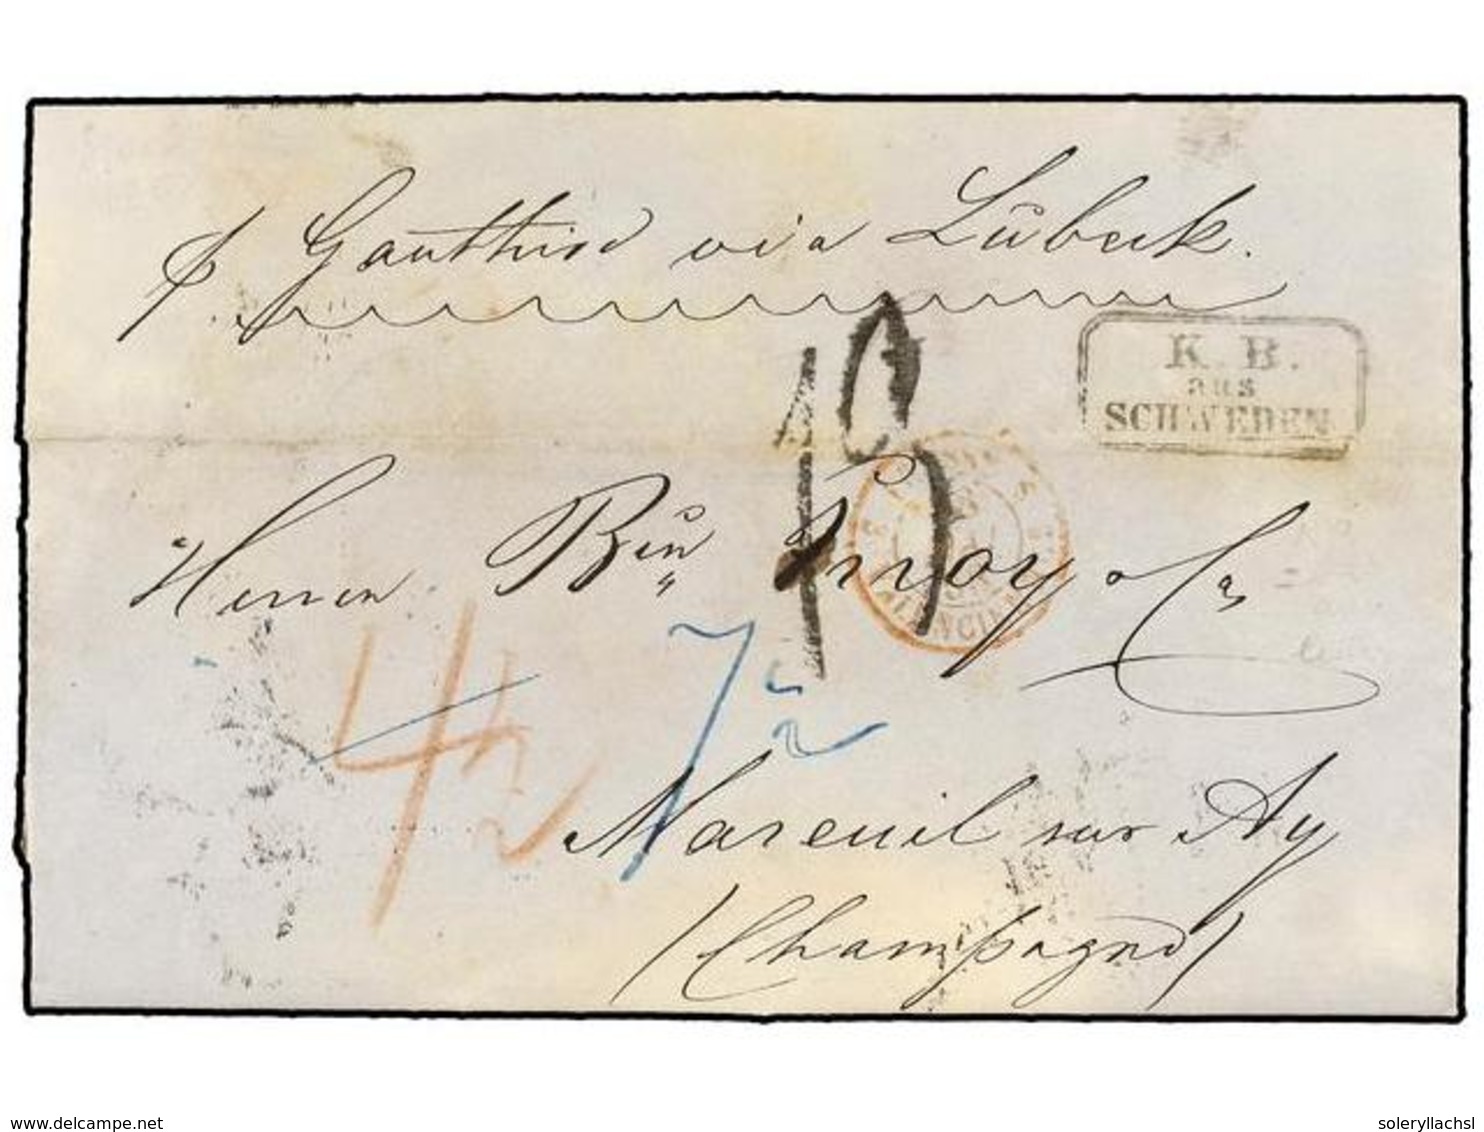 p. Gauthiod via Lübeck.
K. B.
aus
SCHWEDEN
Herren Bin
& Co
4½
7½
Mareuil sur Ay
(Champagne)
www.delcampe.net
soleryllachsl